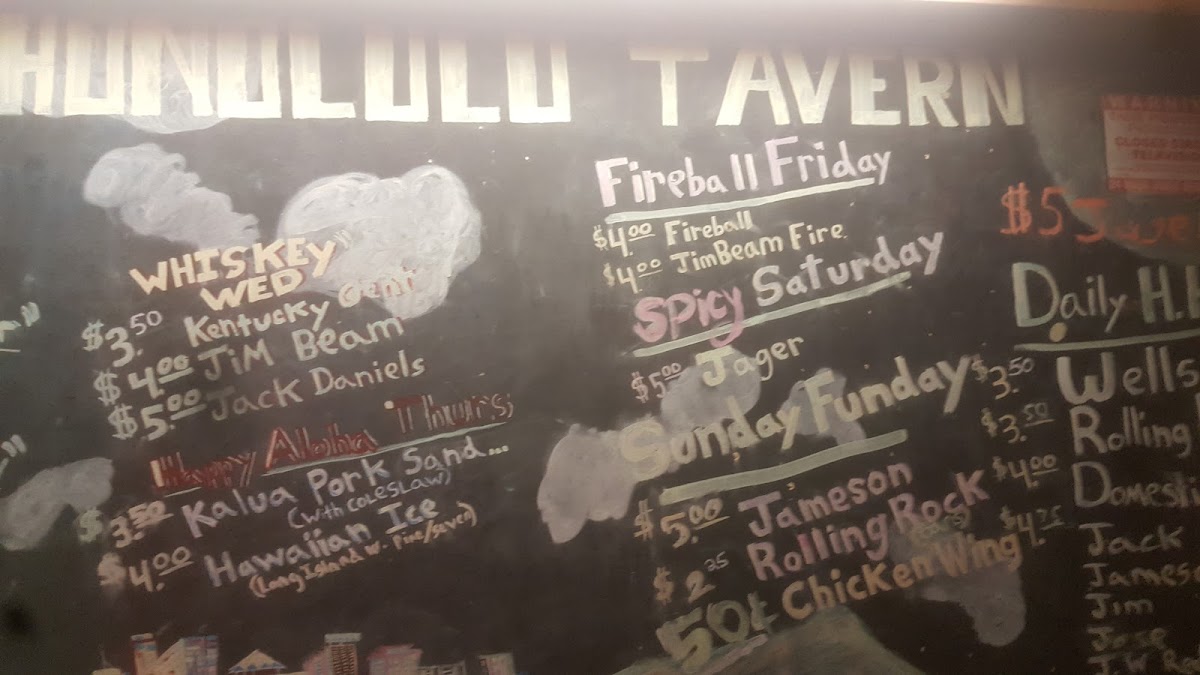 HONOLULU TAVERN
WHISKEY
WED
$3.50 Kentucky Gent
$4.00 JiM Beam
$5.00 Jack Daniels
Happy Aloha Thurs
$3.50 Kalua Pork Sand...
(with COLESLAW)
$4.00 Hawaiian Ice
Fireball Friday
$4.00 Fireball
$4.00 JimBeam Fire
SPicy Saturday
$5.00 Jager
Sunday Funday
$5.00 Jameson
$2.25 Rolling Rock
50¢ Chicken Wing
WARNING
CLOSED
TELEVISION
$5
Daily H.
$3.50 Wells
$3.50 Rolling
$4.00 Domesti
$4.25 Jack
James
Jim
Jose
J.W. Re